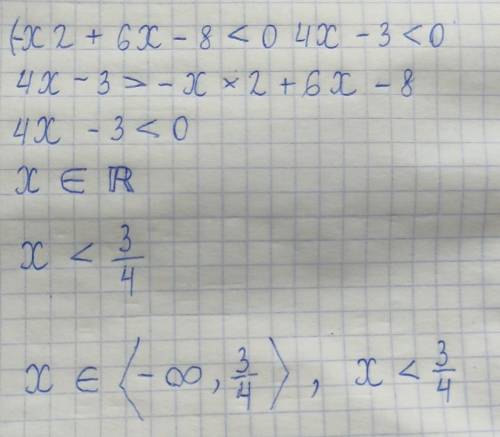 (-x2 + 6x - 8 < 0 4x - 3 < 0
4x - 3 > -x × 2 + 6x - 8
4x - 3 < 0
x ∈ ℝ
x < 3/4
x ∈ ⟨-∞, 3/4⟩, x < 3/4